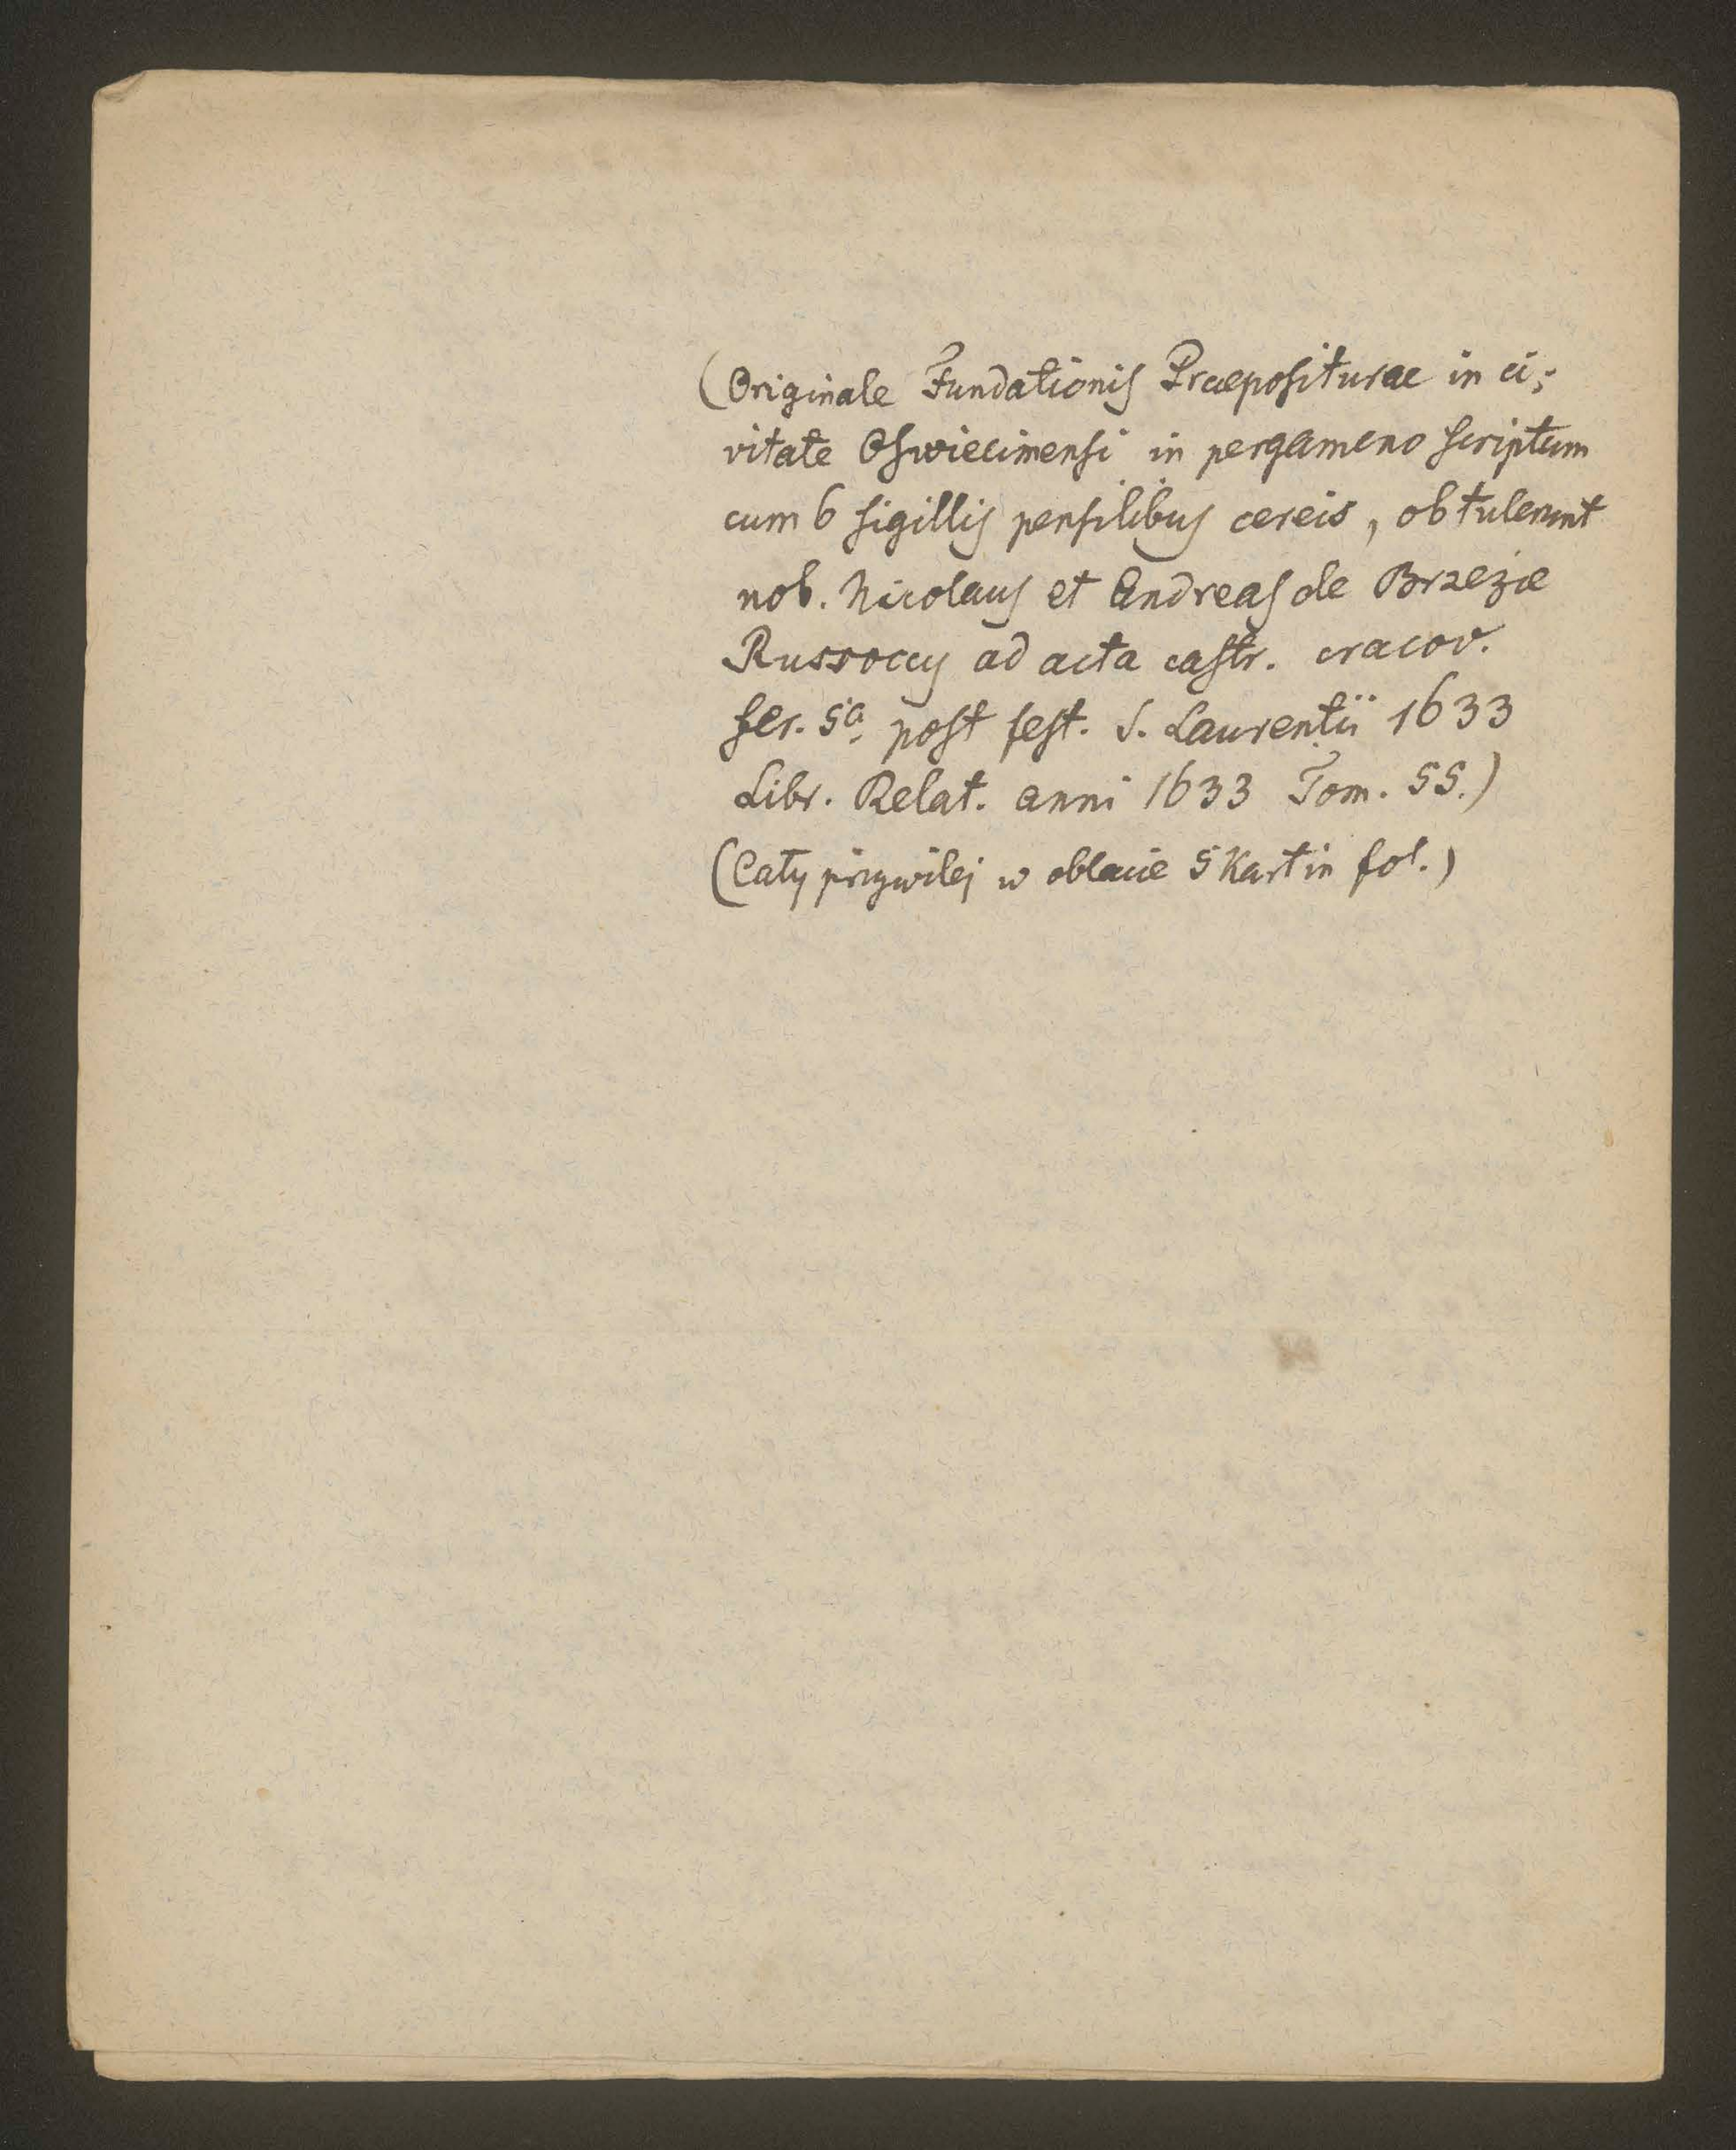 (Originale Fundationis Praepositurae in ci-
vitate Oswiecimensi in pergameno scriptum
cum 6 sigillis pensilibus cereis, obtulerunt
nob. Nicolaus et Andreas de Brzezie
Russoccy ad acta castr. cracov.
fer. 5a post fest. S. Laurentii 1633
Libr. Relat. anni 1633 Tom. 55.)
(Cały przywilej w oblacie 5 kart in fol.)